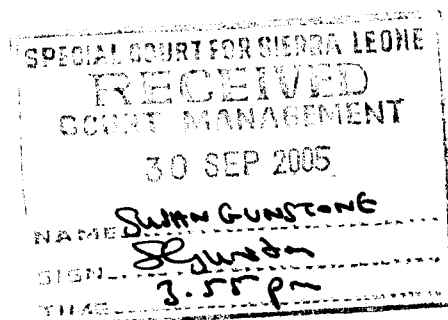 SPECIAL COURT FOR SIERRA LEONE
RECEIVED
COURT MANAGEMENT
30 SEP 2005
NAME SUSAN GUNSTONE
SIGN
TIME 3.55 pm